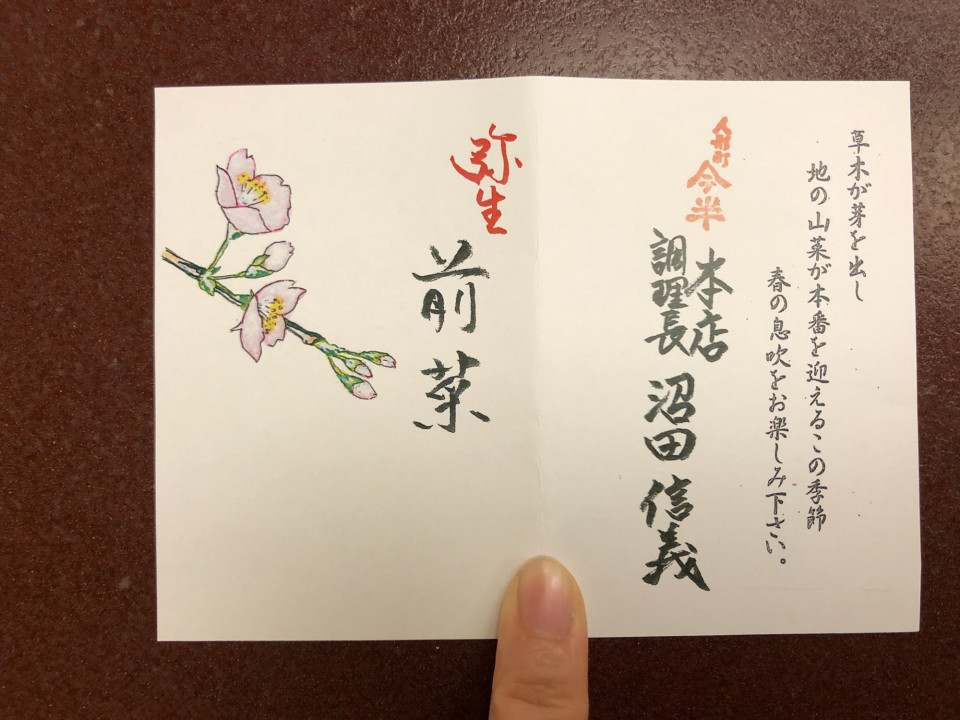 草木が芽を出し
地の山菜が本番を迎えるこの季節
春の息吹をお楽しみ下さい。
人形町今半
本店
調理長 沼田 信義
弥生
前菜